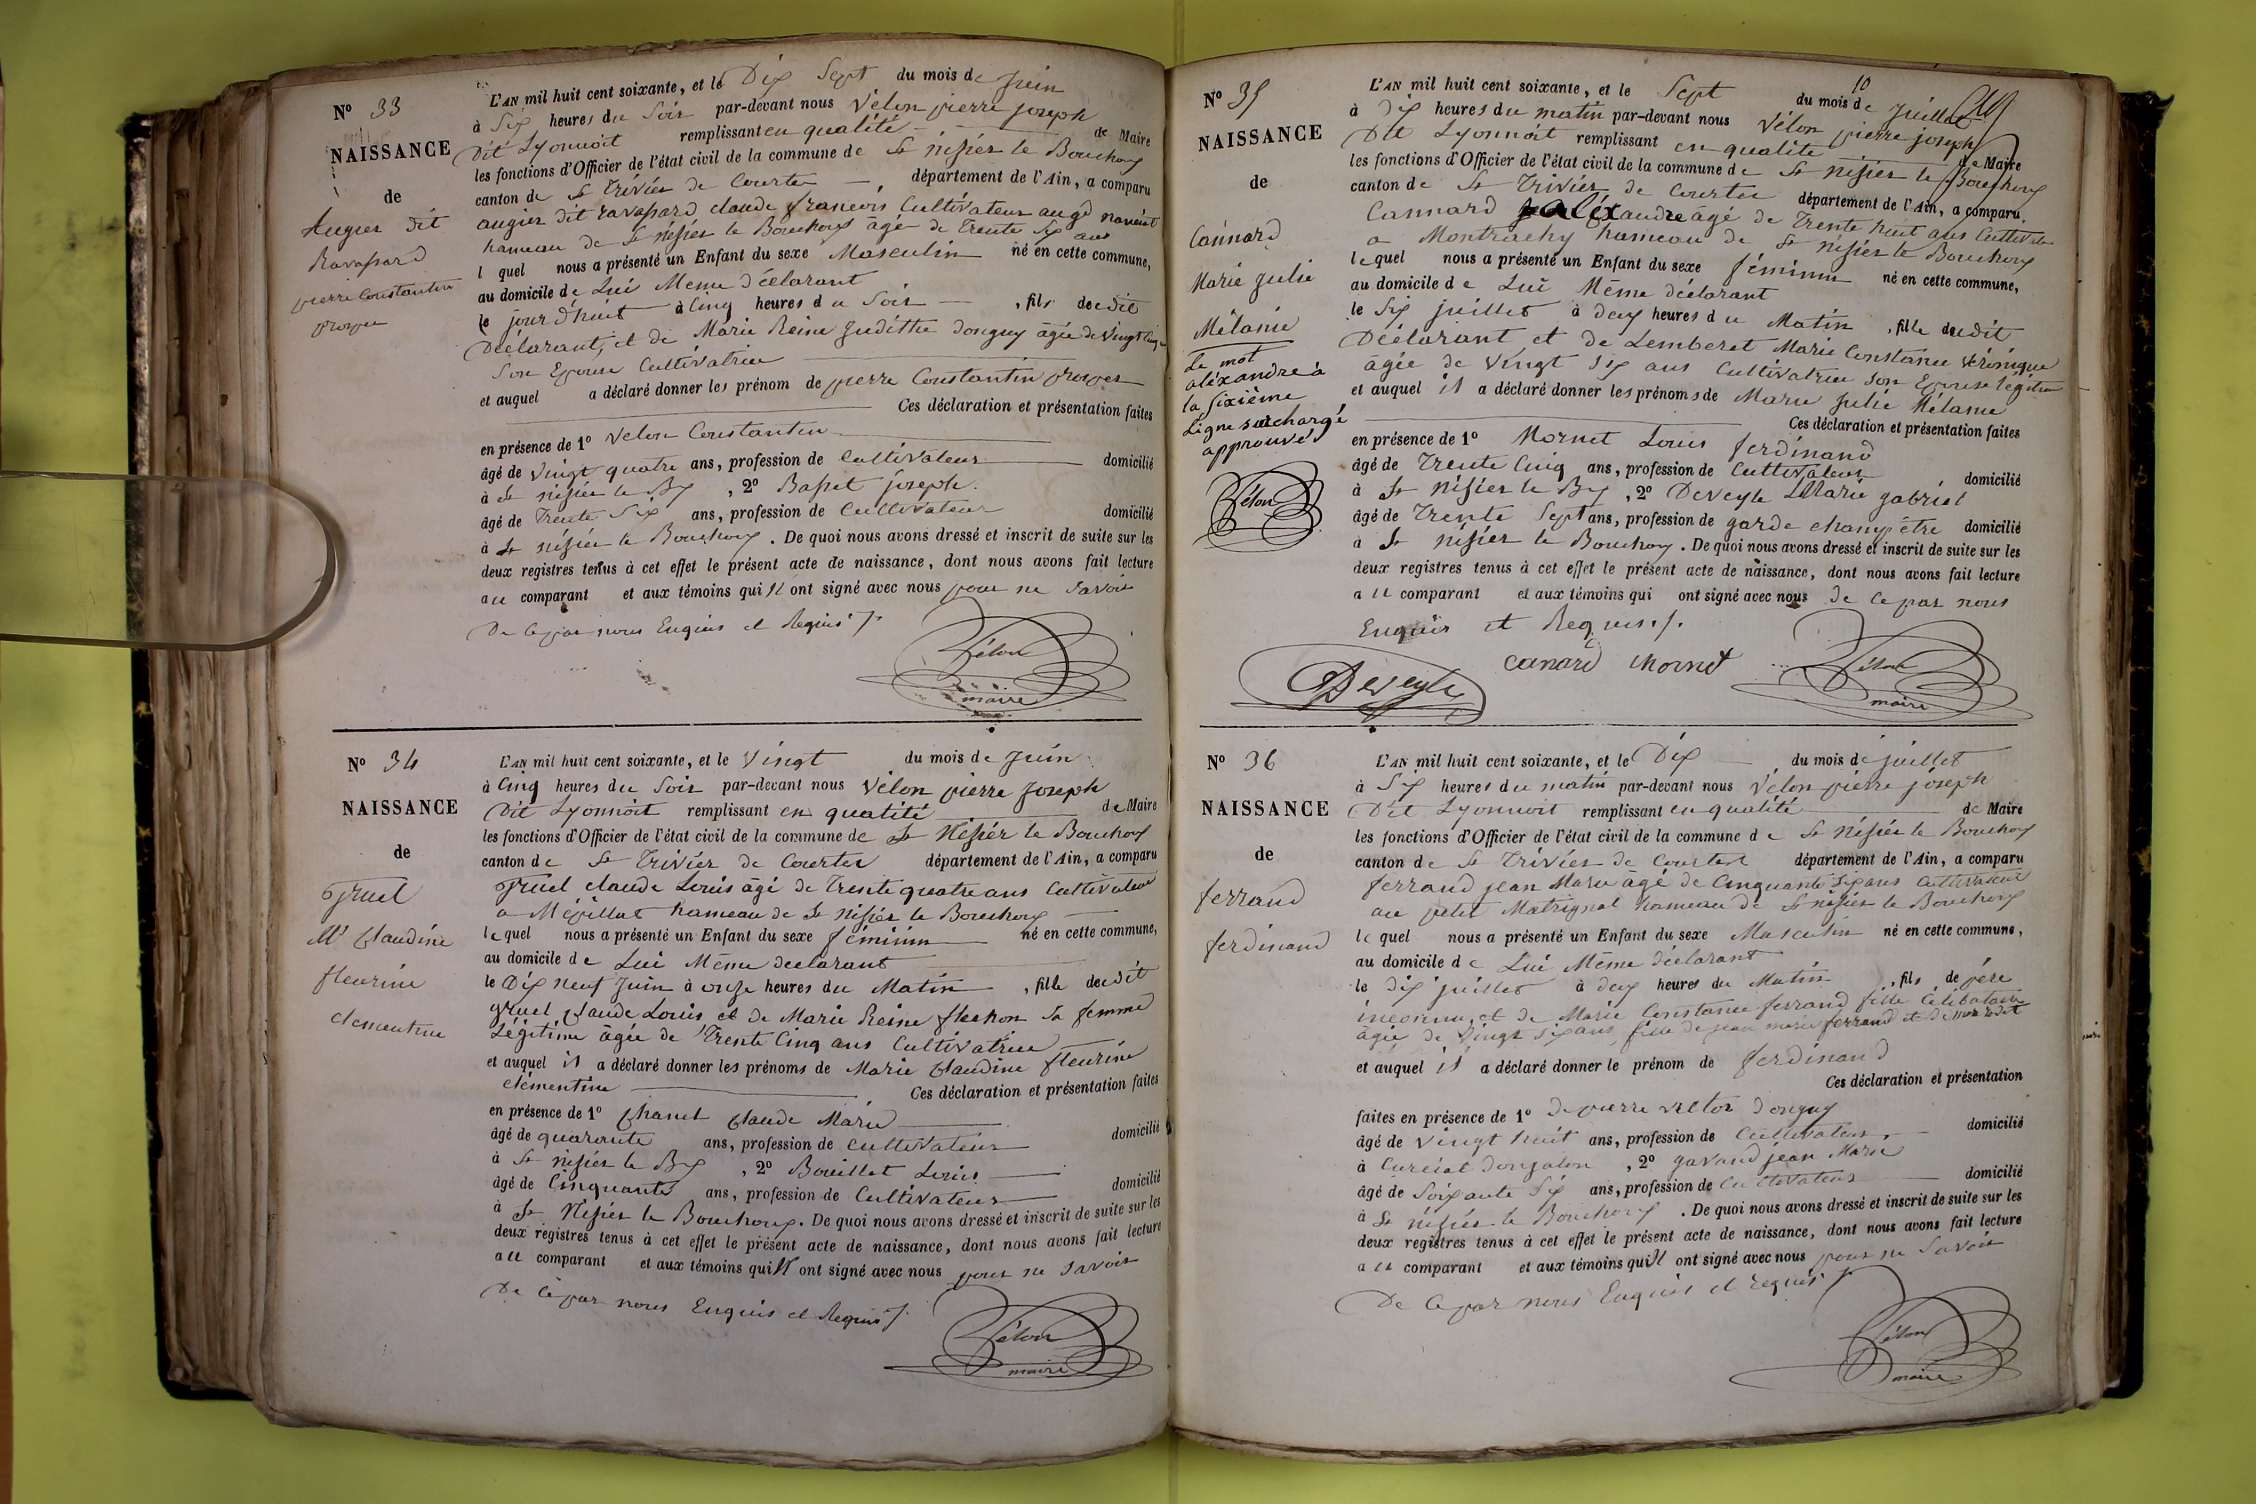 N° 33
NAISSANCE
de
Augier dit
Ravassard
pierre Constantin
prosper
L'AN mil huit cent soixante, et le Dix Sept du mois de Juin
à Six heures du Soir par-devant nous Vélon pierre joseph
Dit Lyonnoit remplissant en qualité de Maire
les fonctions d'Officier de l'état civil de la commune de St nisiér le Bouchoux
canton de St Triviér de Courtes, département de l'Ain, a comparu
augier dit ravassard claude francois Cultivateur au gd
hameau de St nisier le Bouchoux âgé de Trente Six ans
lequel nous a présenté un Enfant du sexe Masculin né en cette commune,
au domicile de Lui Meme déclarant
le jour d'huit à Cinq heures du Soir, fils dudit
Déclarant, et de Marie Reine Judithe donguy âgée de Vingt Cinq
Son Epouse Cultivatrice
et auquel a déclaré donner les prénom de pierre Constantin prosper
Ces déclaration et présentation faites
en présence de 1° Velon Constantin
âgé de Vingt quatre ans, profession de Cultivateur domicilié
à St nisiér le Bx, 2° Basset joseph
âgé de Trente Six ans, profession de Cultivateur domicilié
à St nisiér le Bouchoux. De quoi nous avons dressé et inscrit de suite sur les
deux registres tenus à cet effet le présent acte de naissance, dont nous avons fait lecture
au comparant et aux témoins qui N ont signé avec nous pour ne Savoir
De Ce par nous Enquis et Requis ./.
Vélon
maire
N° 34
NAISSANCE
de
gruel
Me Claudine
fleurine
clementine
L'AN mil huit cent soixante, et le Vingt du mois de Juin
à Cinq heures du Soir par-devant nous Vélon pierre Joseph
Dit Lyonnoit remplissant en qualité de Maire
les fonctions d'Officier de l'état civil de la commune de St Nisiér le Bouchoux
canton de St Triviér de Courtes département de l'Ain, a comparu
gruel claude Louis âgé de Trente quatre ans Cultivateur
a Mépillat hameau de St Nisiér le Bouchoux
lequel nous a présenté un Enfant du sexe féminin né en cette commune,
au domicile de Lui Même declarant
le Dix neuf Juin à onze heures du Matin, fille dudit
gruel Claude Louis et de Marie Reine flechon Sa femme
Légitime âgée de Trente Cinq ans Cultivatrice
et auquel il a déclaré donner les prénoms de Marie Claudine fleurine
clémentine Ces déclaration et présentation faites
en présence de 1° Chanel Claude Marie
âgé de quarante ans, profession de Cultivateur domicilié
à St nisiér le Bx, 2° Bouillet Louis
âgé de Cinquante ans, profession de Cultivateur domicilié
à St Nisiér le Bouchoux. De quoi nous avons dressé et inscrit de suite sur les
deux registres tenus à cet effet le présent acte de naissance, dont nous avons fait lecture
au comparant et aux témoins qui N ont signé avec nous pour ne Savoir
De Ce par nous Enquis et Requis ./.
Vélon
maire
N° 35
NAISSANCE
de
Cannard
Marie julie
Mélanie
Le mot
aléxandre à
la sixième
Ligne surchargé
approuvé
Vélon
L'AN mil huit cent soixante, et le Sept du mois de juillet
10
à Dix heures du matin par-devant nous Vélon pierre joseph
Dit Lyonnoit remplissant en qualité de Maire
les fonctions d'Officier de l'état civil de la commune de St nisiér le Bouchoux
canton de St Triviér de Courtes département de l'Ain, a comparu.
Cannard aléxandre âgé de Trente huit ans Cultivateur
a Montrachy hameau de St nisiér le Bouchoux
lequel nous a présenté un Enfant du sexe féminin né en cette commune,
au domicile de Lui Même déclarant
le Six juillet à deux heures du Matin, fille dudit
Déclarant et de Lemberet Marie Constance véronique
âgée de Vingt Six ans Cultivatrice son Epouse légitime
et auquel il a déclaré donner les prénoms de Marie Julie Mélanie
Ces déclaration et présentation faites
en présence de 1° Mornet Louis ferdinand
âgé de Trente Cinq ans, profession de Cultivateur domicilié
à St Nisiér le Bx, 2° Deveyle Marie gabriel
âgé de Trente Sept ans, profession de garde champêtre domicilié
à St nisiér le Bouchoux. De quoi nous avons dressé et inscrit de suite sur les
deux registres tenus à cet effet le présent acte de naissance, dont nous avons fait lecture
au comparant et aux témoins qui ont signé avec nous de Ce par nous
Enquis et Requis ./.
Canard Mornet Vélon
Deveyle maire
N° 36
NAISSANCE
de
ferrand
ferdinand
L'AN mil huit cent soixante, et le Dix du mois de juillet
à Six heures du matin par-devant nous Vélon pierre joseph
Dit Lyonnoit remplissant en qualité de Maire
les fonctions d'Officier de l'état civil de la commune de St Nisiér le Bouchoux
canton de St Triviér de Courtes département de l'Ain, a comparu
ferrand jean Marie âgé de Cinquante Six ans Cultivateur
au petit Matrignat hameau de St nisiér le Bouchoux
lequel nous a présenté un Enfant du sexe Masculin né en cette commune,
au domicile de Lui Même déclarant
le dix juillet à deux heures du Matin, fils de pére
inconnu, et de Marie Constance ferrand fille Célibataire
âgée de Vingt Six ans, fille de jean marie ferrand et de
et auquel il a déclaré donner le prénom de ferdinand
Ces déclaration et présentation
faites en présence de 1° de pierre Victor donguy
âgé de Vingt huit ans, profession de Cultivateur domicilié
à Curciat dongalon, 2° gavand jean Marie
âgé de Soixante Six ans, profession de Cultivateur domicilié
à St nisiér le Bouchoux. De quoi nous avons dressé et inscrit de suite sur les
deux registres tenus à cet effet le présent acte de naissance, dont nous avons fait lecture
au comparant et aux témoins qui N ont signé avec nous pour ne Savoir
De Ce par nous Enquis et requis ./.
Vélon
maire